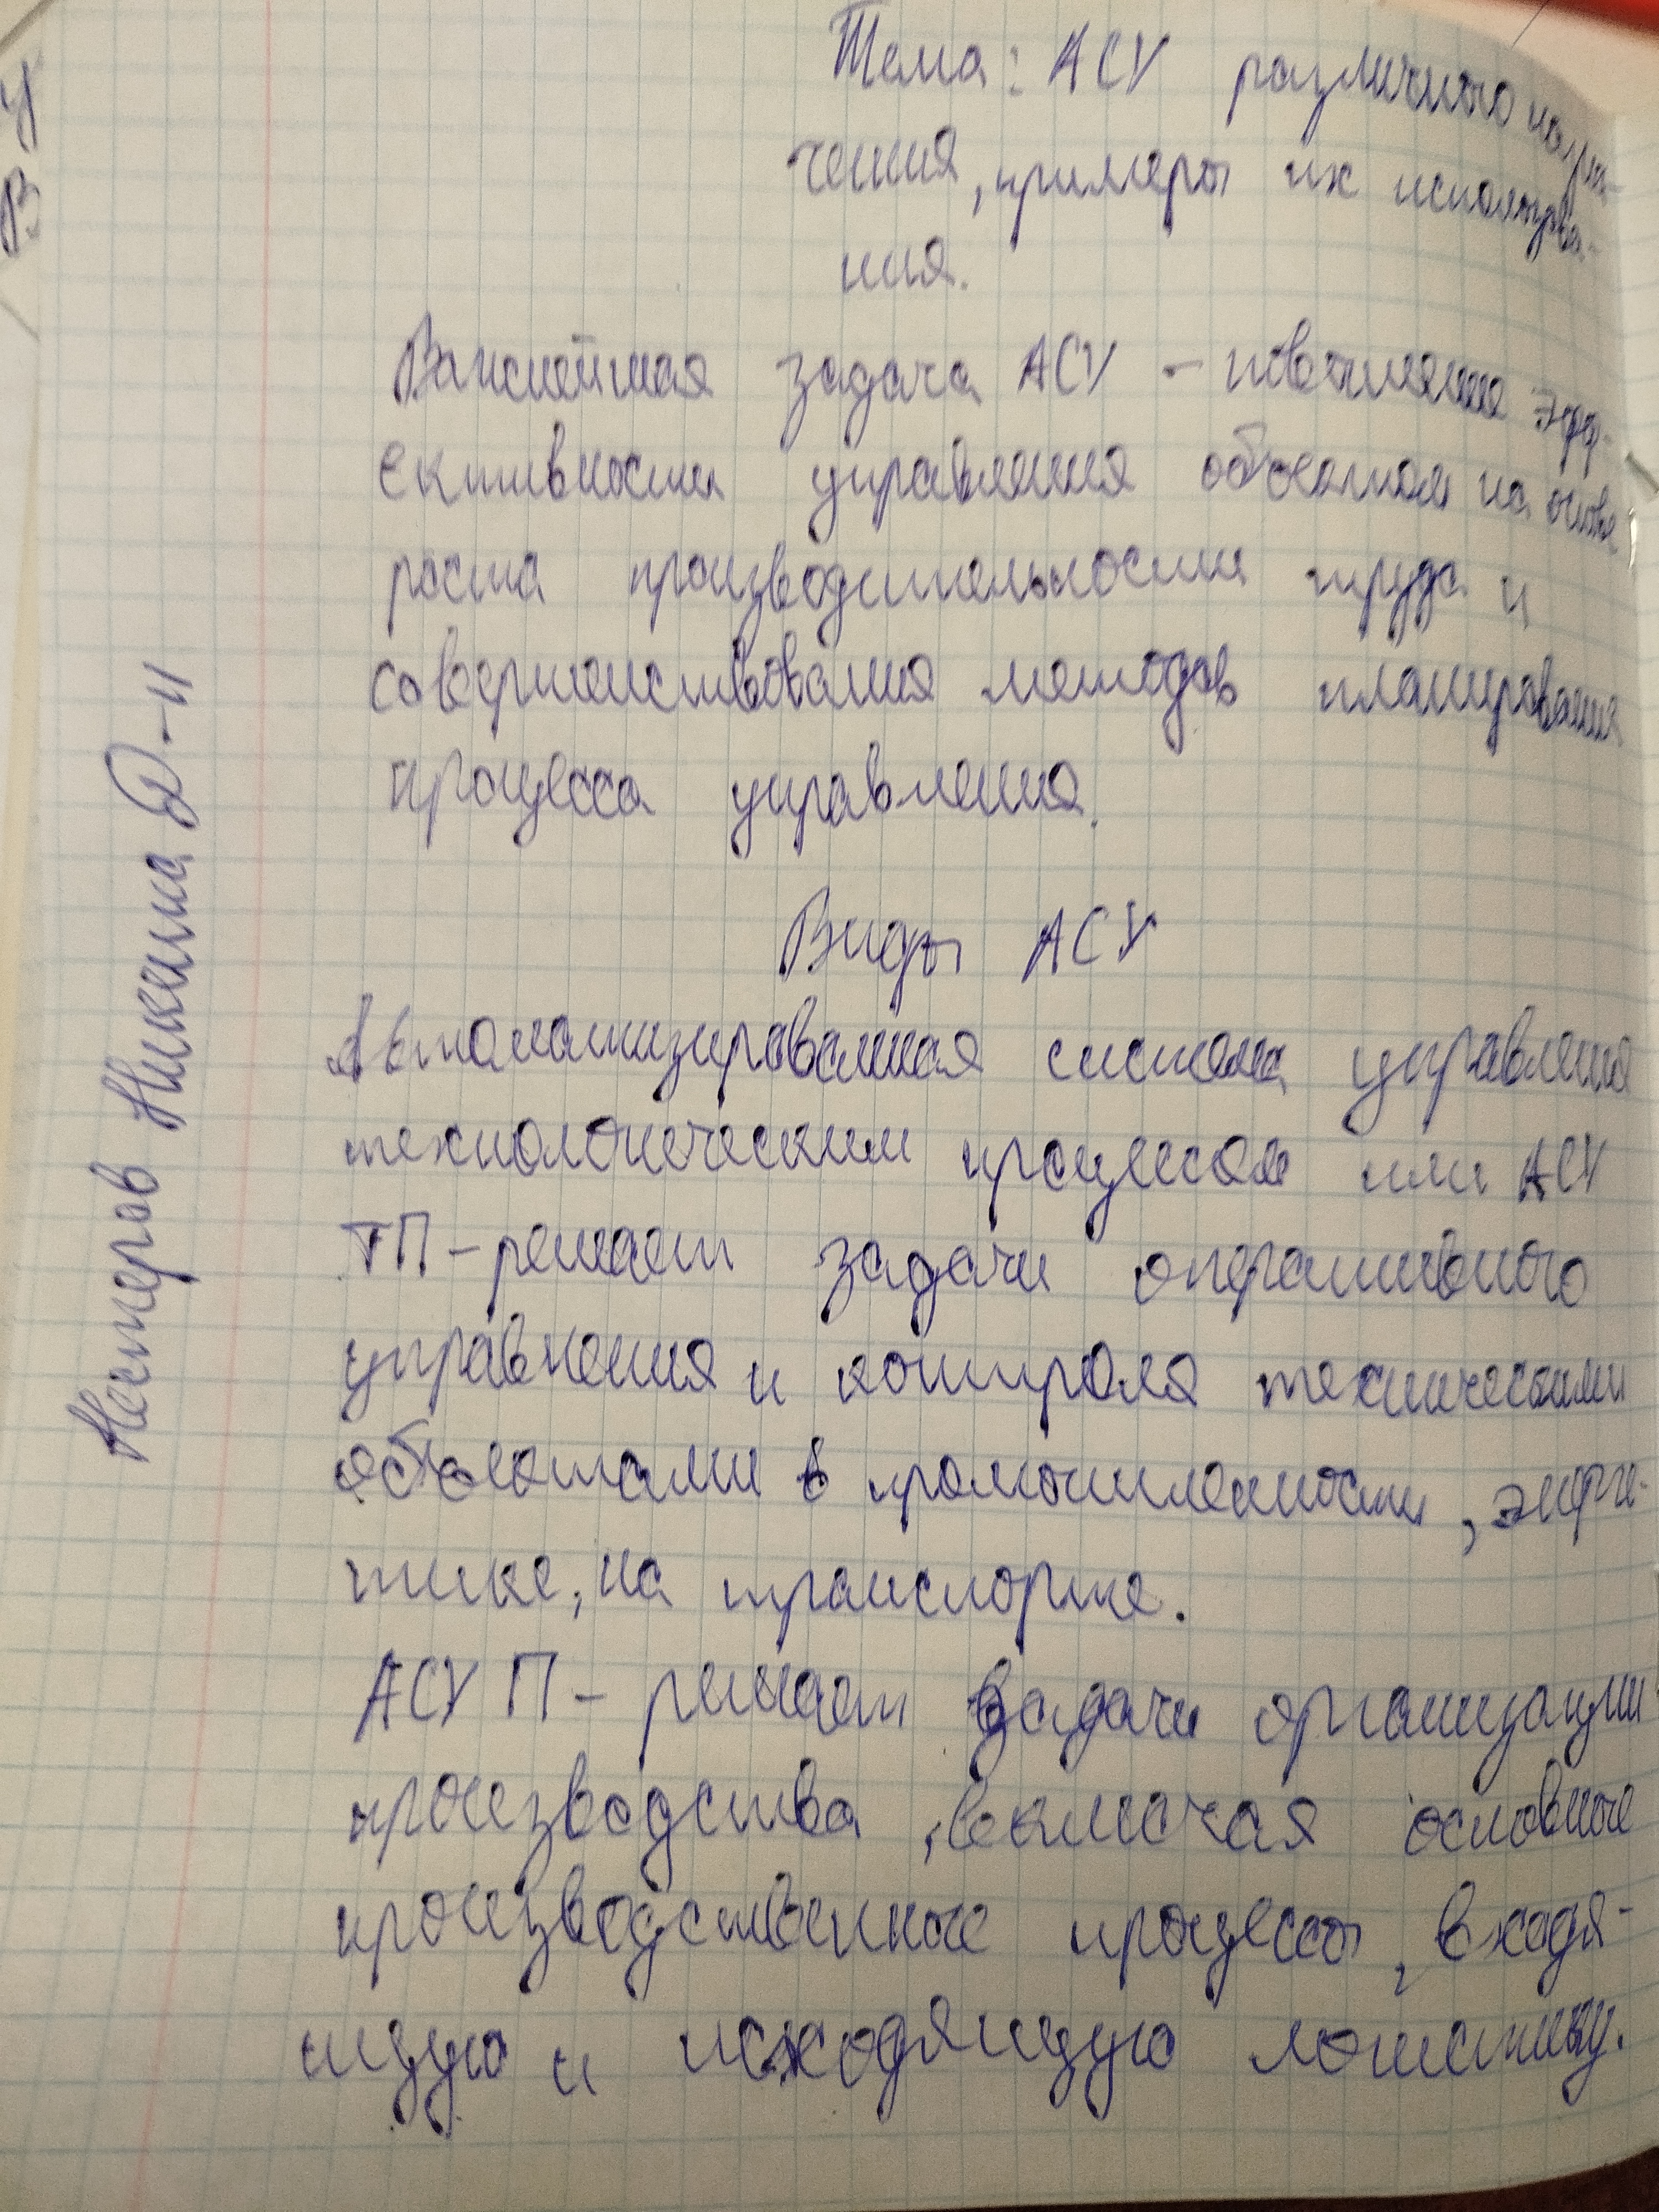 Тема: АСУ различного назна-
чения, примеры их использова-
ния.
Важнейшая задача АСУ - повышение эфф-
ективности управления объектом на основе
роста производительности труда и
совершенствования методов планирования
процесса управления.
Виды АСУ
Автоматизированная система управления
технологическим процессом или АСУ
ТП - решает задачи оперативного
управления и контроля техническими
объектами в промышленности, энерге-
тике, на транспорте.
АСУ П - решает задачи организации
производства, включая основные
производственные процессы, входя-
щую и исходящую логистику.
Нестеров Никита Д-11